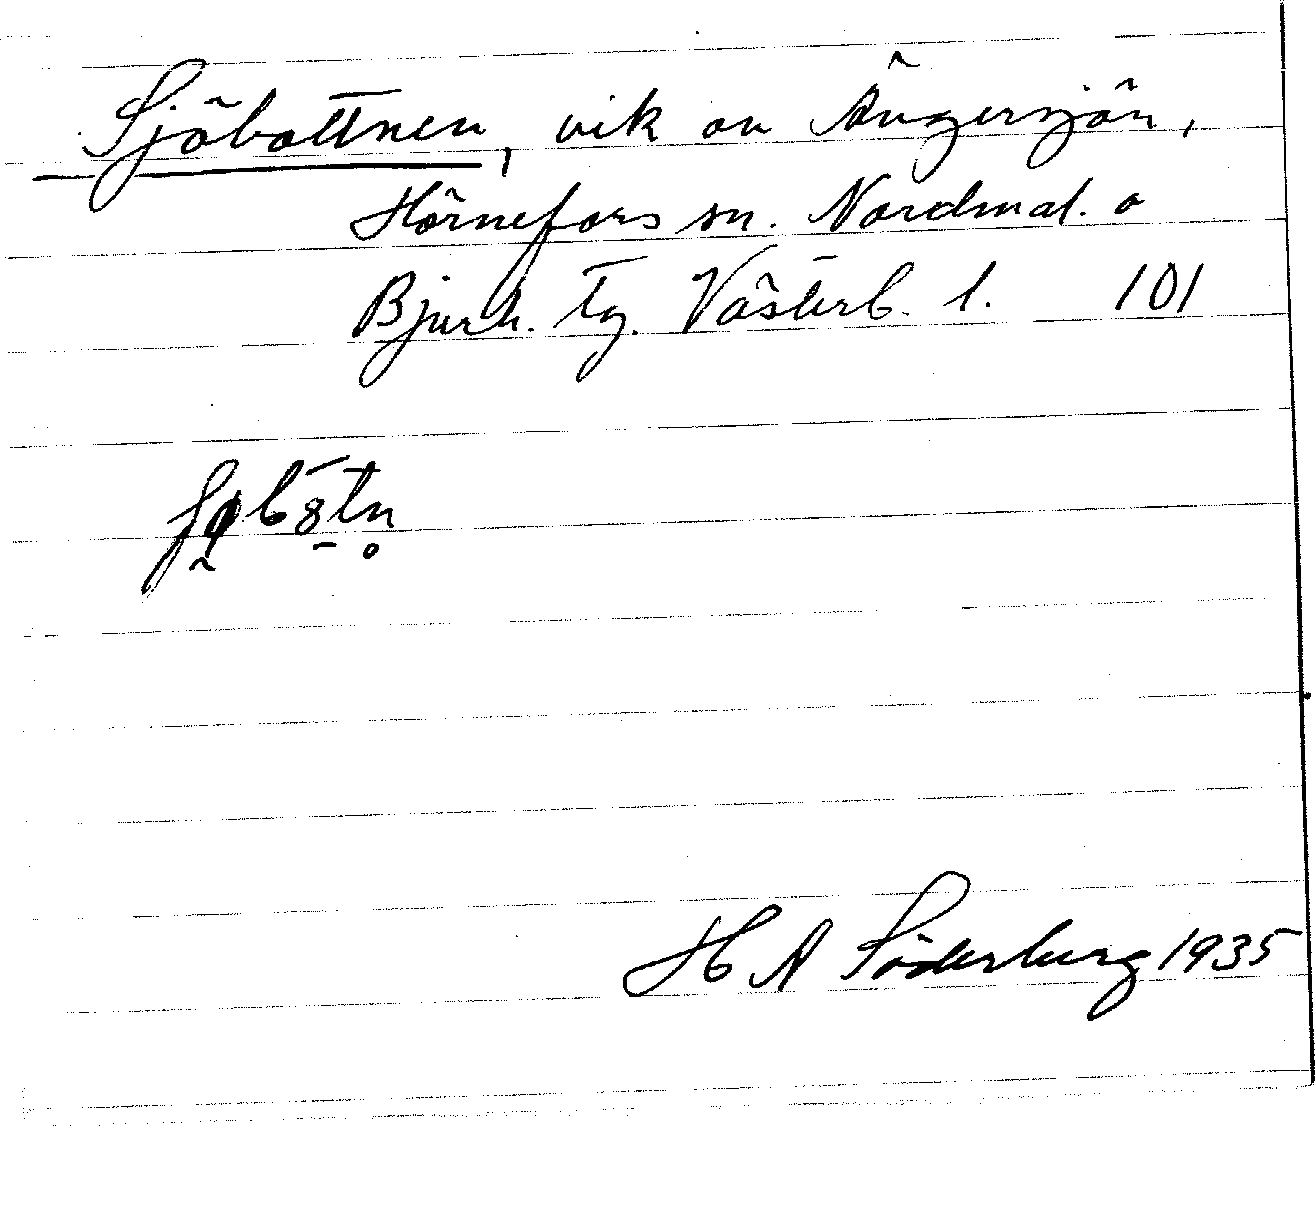 Sjöbottnen, vik av Ängersjön,
Hörnefors sn. Nordmal. o
Bjurh. tg. Västerb. l. 101
H A Söderberg 1935